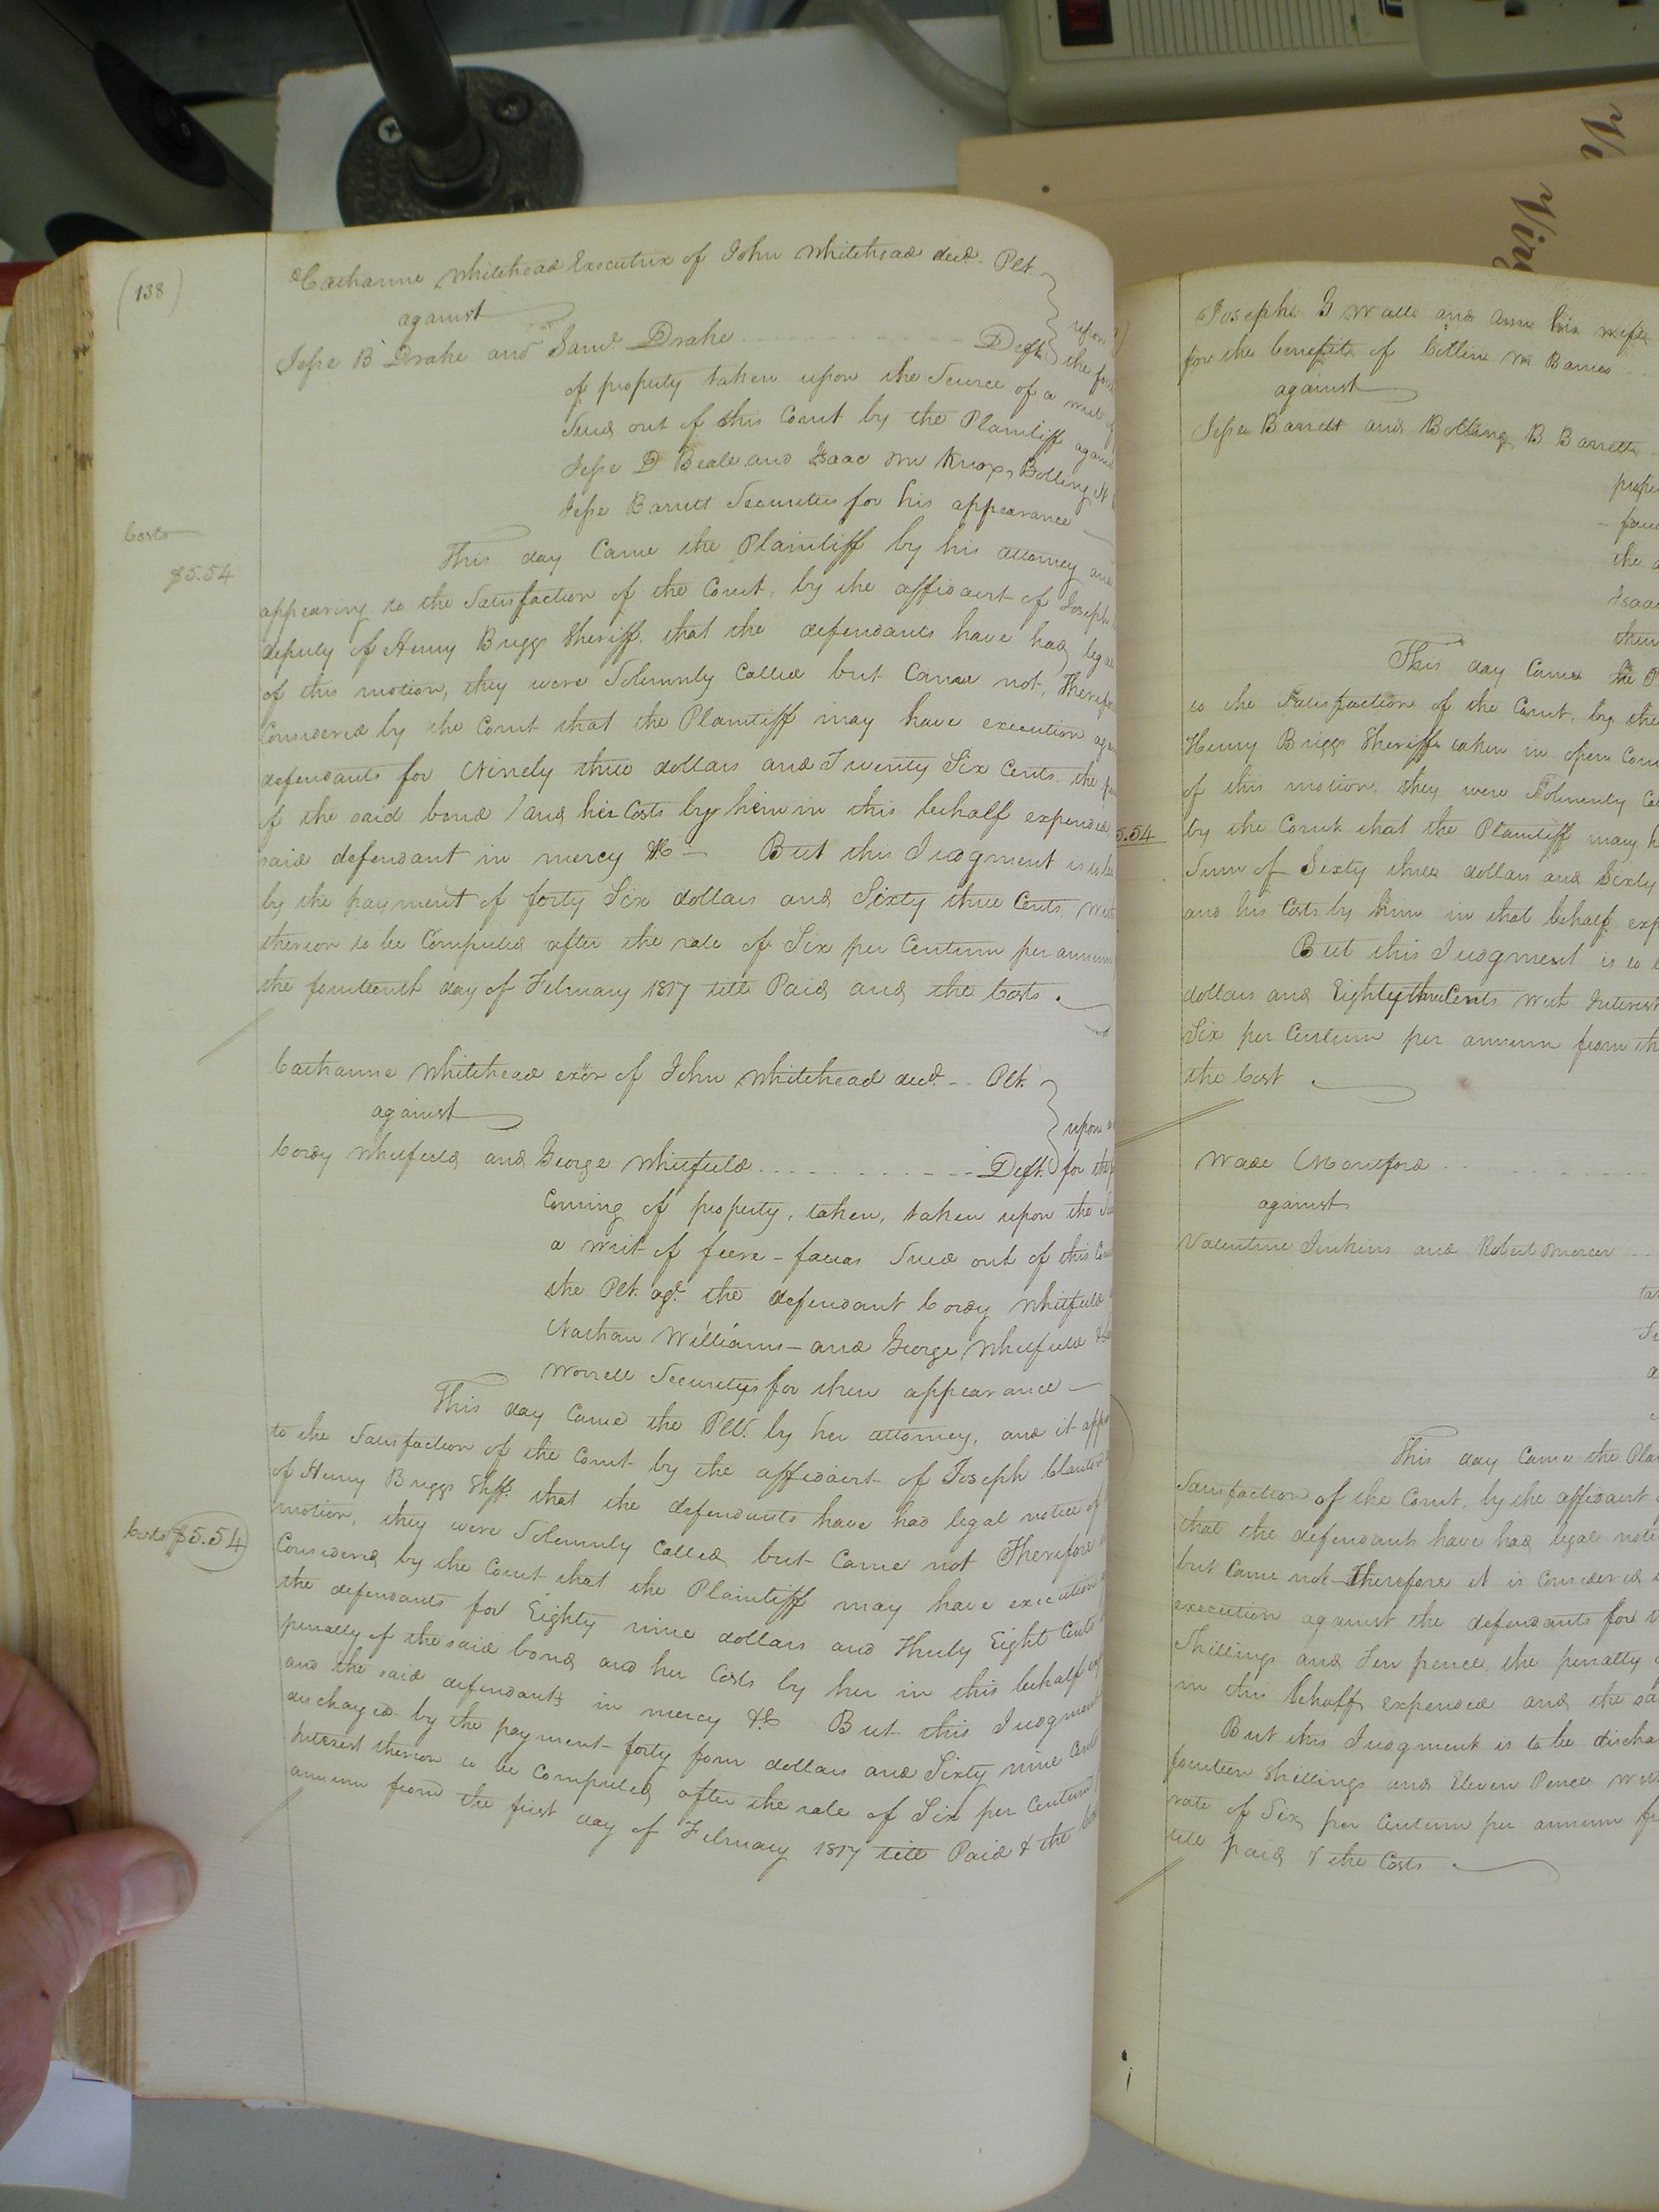 (138)
Catharine Whitehead Executrix of John Whitehead decd. Plt.
against
Jesse B Drake and Saml. Drake Defts. upon
the
of property taken upon the Service of a writ
Sued out of this Court by the Plaintiff against
Jesse D Beale and Isaac Knox, Bolling H
Jesse Barrett Securities for his appearance
Costs
$5.54
This day Came the Plaintiff by his attorney and
appearing to the Satisfaction of the Court, by the affidavit of Joseph
deputy of Henry Briggs Sheriff. that the defendants have had legal
of this motion, they were Solemnly Called but Came not, Therefore
Considered by the Court that the Plaintiff may have execution
defendants for Ninety three dollars and Twenty Six Cents. the
of the said bond / and his Costs by him in this behalf expended
said defendant in mercy &c — But this Judgment is
by the payment of forty Six dollars and Sixty three Cents, with
thereon to be Computed after the rate of Six per Centum per annum
the fourteenth day of February 1817 till Paid and the Costs.
Catharine Whitehead exor of John Whitehead decd. Plt.
against
Cordy Whitfield and George Whitfield Deft. upon
for the
Coming of property, taken, taken upon the
a writ of fiera-facias Sued out of this
the Plt. agt. the defendant Cordy Whitfield
Nathan Williams — and George Whitfield &
Worrell Securitys for their appearance —
This day Came the Plt. by her attorney, and it
to the Satisfaction of the Court by the affidavit of Joseph
of Henry Briggs Shff. that the defendants have had legal notice of
motion, they were Solemnly Called but Came not Therefore
Costs $5.54
Considered by the Court that the Plaintiff may have execution
the defendants for Eighty nine dollars and Thirty Eight Cents
penalty of the said bond and her Costs by her in this behalf
and the said defendants in mercy &c But this Judgment
discharged by the payment forty four dollars and Sixty nine Cents
Interest thereon to be Computed after the rate of Six per Centum
annum from the first day of February 1817 till Paid & the
Joseph G Wall and Ann his wife
for the benefit of Collin W Barnes
against
Jesse Barrett and Bolling B Barrett
the
Isaac
This day Came the
to the Satisfaction of the Court, by the
Henry Briggs Sheriff taken in open Court
of this motion, they were Solemnly
5.54
by the Court that the Plaintiff may
Sum of Sixty three dollars and Sixty
and his Costs by him in that behalf
But this Judgment is to
dollars and Eighty three Cents with Interest
Six per Centum per annum from
the Cost
Wade Mountford
against
Valentine Jenkins and Robert Mercer
This day Came the
Satisfaction of the Court, by the affidavit
that the defendants have had legal
but Came not Therefore it is Considered
execution against the defendants for
Shillings and Ten pence, the penalty
in this behalf expended and the
But this Judgment is to be
fourteen Shillings and Eleven Pence
rate of Six per Centum per annum
till paid & the Costs